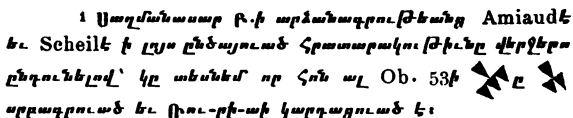 1 Սաղմանասար Բ.ի արձանագրութեանց Amiaudէ
եւ Scheilէ ի լոյս ընծայուած Հրատարակութիւնը վերջերս
ընդունելով՝ կը տեսնեմ որ Հոն ալ Ob. 53ի ը
սրբագրուած եւ Ռու-րի-աի կարդացուած է։